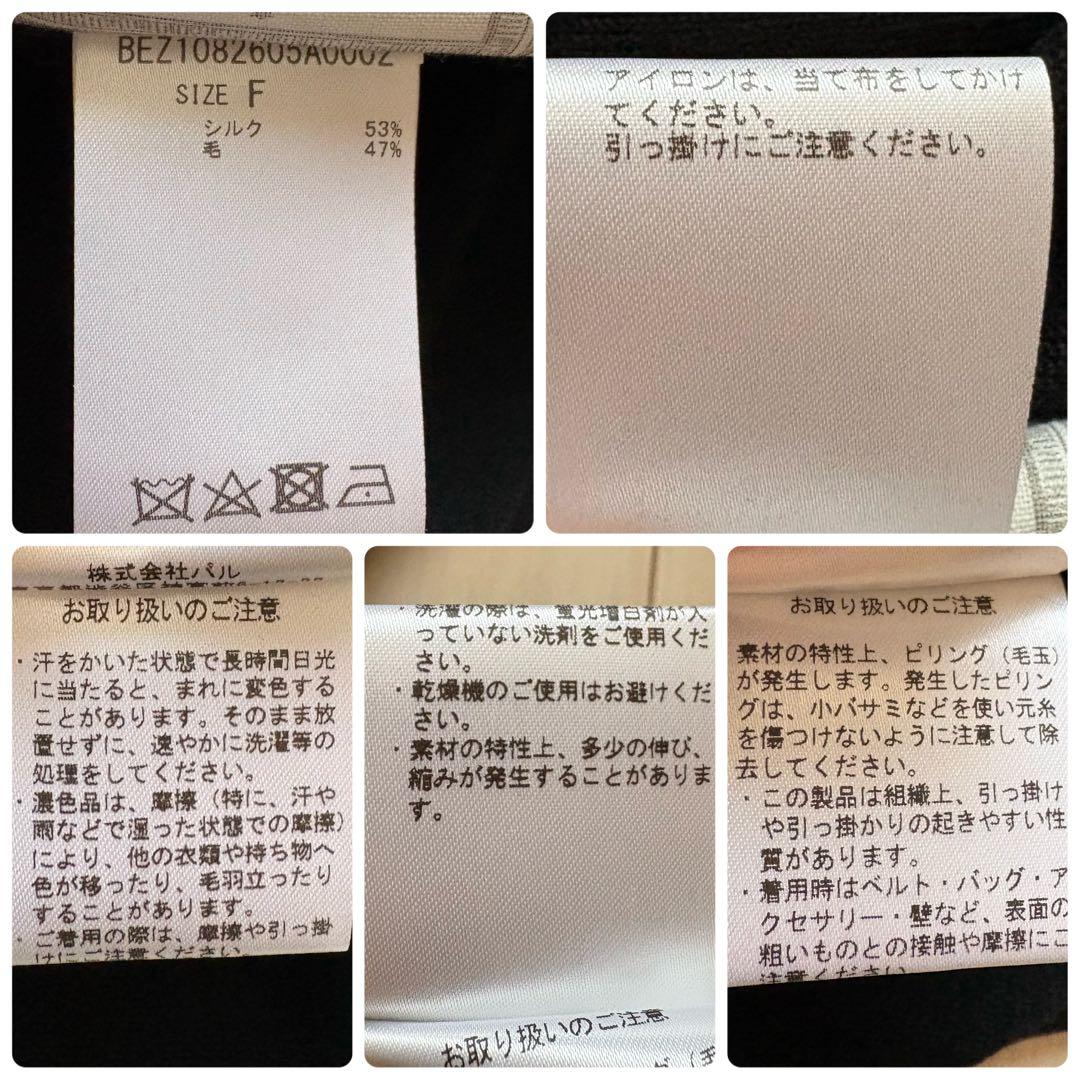 BEZ1082605A0002
SIZE F
シルク 53%
毛 47%
アイロンは、当て布をしてかけ
てください。
引っ掛けにご注意ください。
株式会社パル
お取り扱いのご注意
・汗をかいた状態で長時間日光
に当たると、まれに変色する
ことがあります。そのまま放
置せずに、速やかに洗濯等の
処理をしてください。
・濃色品は、摩擦（特に、汗や
雨などで湿った状態での摩擦）
により、他の衣類や持ち物へ
色が移ったり、毛羽立ったり
することがあります。
・ご着用の際は、摩擦や引っ掛
けにご注意ください。
・洗濯の際は、蛍光増白剤が入
っていない洗剤をご使用くだ
さい。
・乾燥機のご使用はお避けくだ
さい。
・素材の特性上、多少の伸び、
縮みが発生することがありま
す。
お取り扱いのご注意
お取り扱いのご注意
素材の特性上、ピリング（毛玉）
が発生します。発生したピリン
グは、小バサミなどを使い元糸
を傷つけないように注意して除
去してください。
・この製品は組織上、引っ掛け
や引っ掛かりの起きやすい性
質があります。
・着用時はベルト・バッグ・ア
クセサリー・壁など、表面の
粗いものとの接触や摩擦にご
注意ください